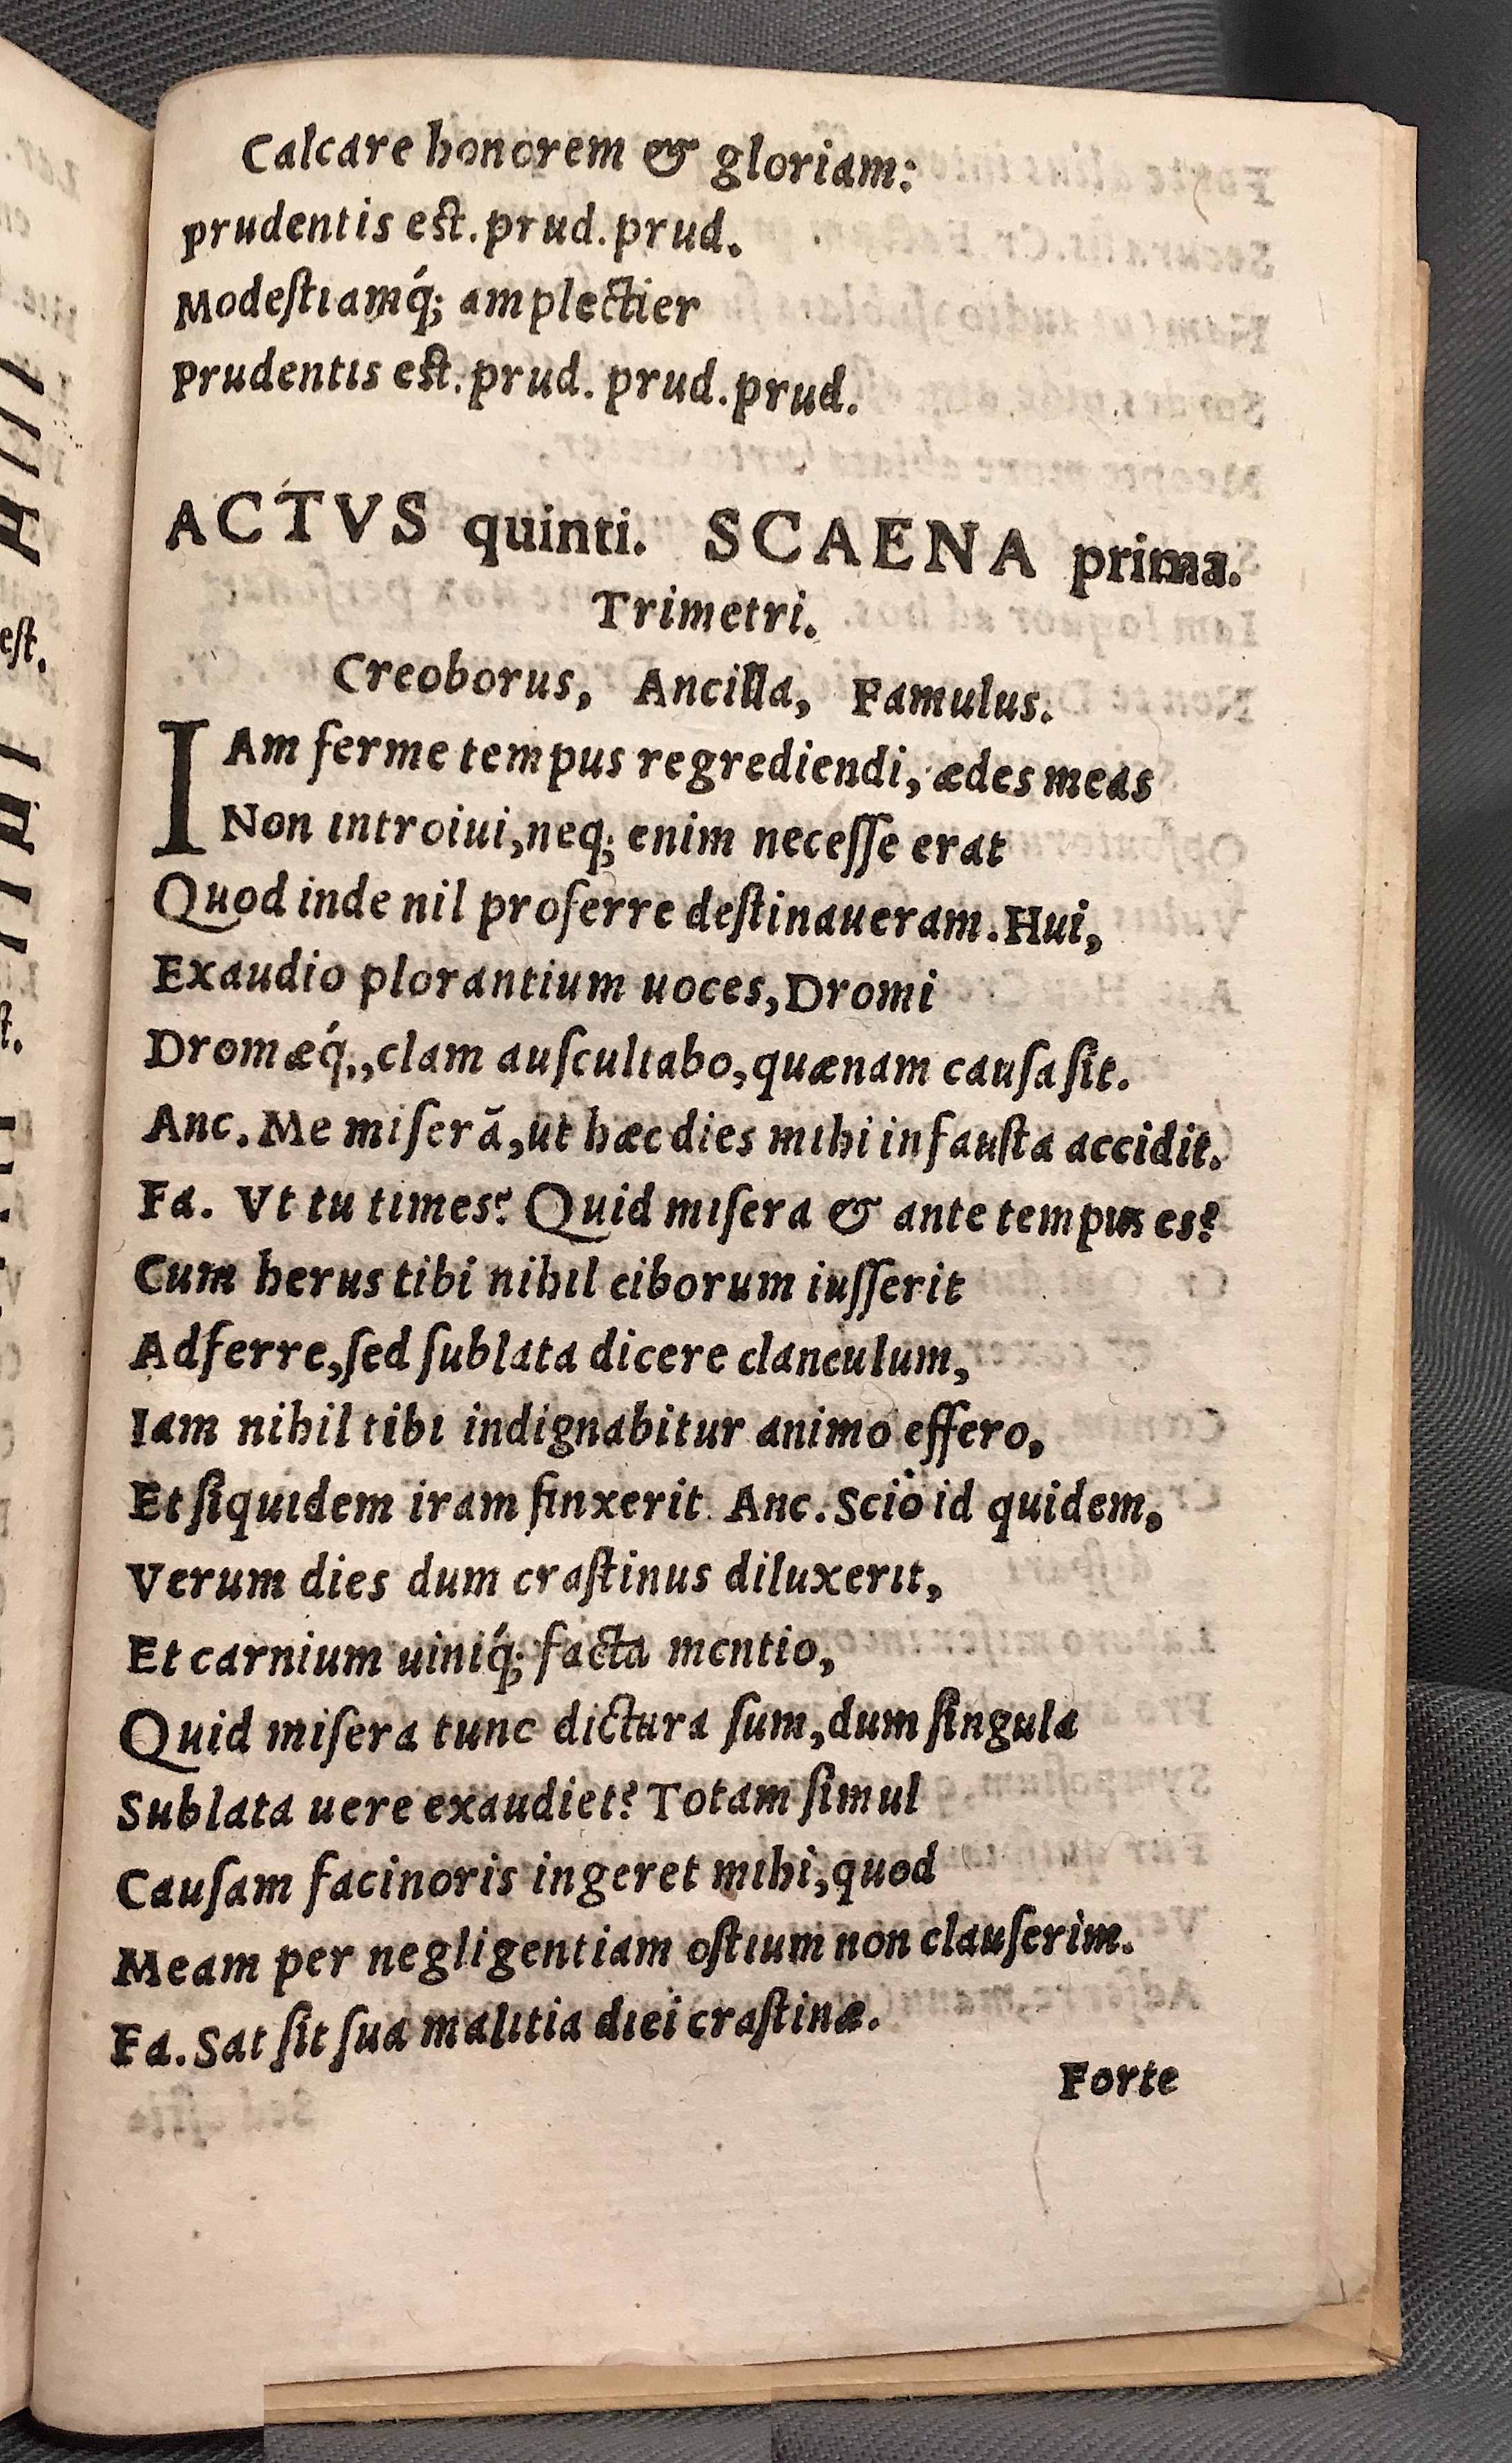 Calcare honorem & gloriam:
prudentis est.prud.prud.
Modeſtiamq́; amplectier
Prudentis est.prud. prud.prud.
ACTVS quinti. SCAENA prima.
Trimetri.
Creoborus, Ancilla, Famulus.
IAm ferme tempus regrediendi, ædes meas
Non introiui,neq; enim neceſſe erat
Quod inde nil proferre deſtinaueram.Hui,
Exaudio plorantium uoces,Dromi
Dromæq́.,clam auſcultabo,quænam cauſa ſit.
Anc. Me miſerā,ut hæc dies mihi infauſta accidit.
Fa. Vt tu times? Quid miſera & ante tempus es?
Cum herus tibi nihil ciborum iuſſerit
Adferre,ſed ſublata dicere clanculum,
Iam nihil tibi indignabitur animo effero,
Et ſiquidem iram finxerit. Anc. Scio id quidem,
Verum dies dum craſtinus diluxerit,
Et carnium uiniq́; facta mentio,
Quid miſera tunc dictura ſum,dum ſingula
Sublata uere exaudiet? Totam ſimul
Cauſam facinoris ingeret mihi,quod
Meam per negligentiam oſtium non clauſerim.
Fa. Sat ſit ſua malitia diei craſtinæ.
Forte
est.
ſt.